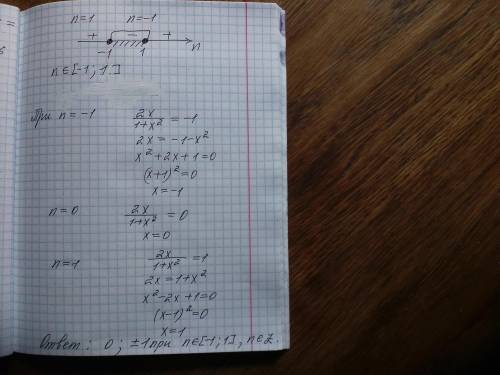 n=1 n=-1
+ - + n
-1 1
n∈[-1; 1]
При n=-1 2x/(1+x²) = -1
2x = -1-x²
x²+2x+1=0
(x+1)²=0
x=-1
n=0 2x/(1+x²) = 0
x=0
n=1 2x/(1+x²) = 1
2x=1+x²
x²-2x+1=0
(x-1)²=0
x=1
Ответ: 0; ±1 при n∈[-1; 1], n∈Z.